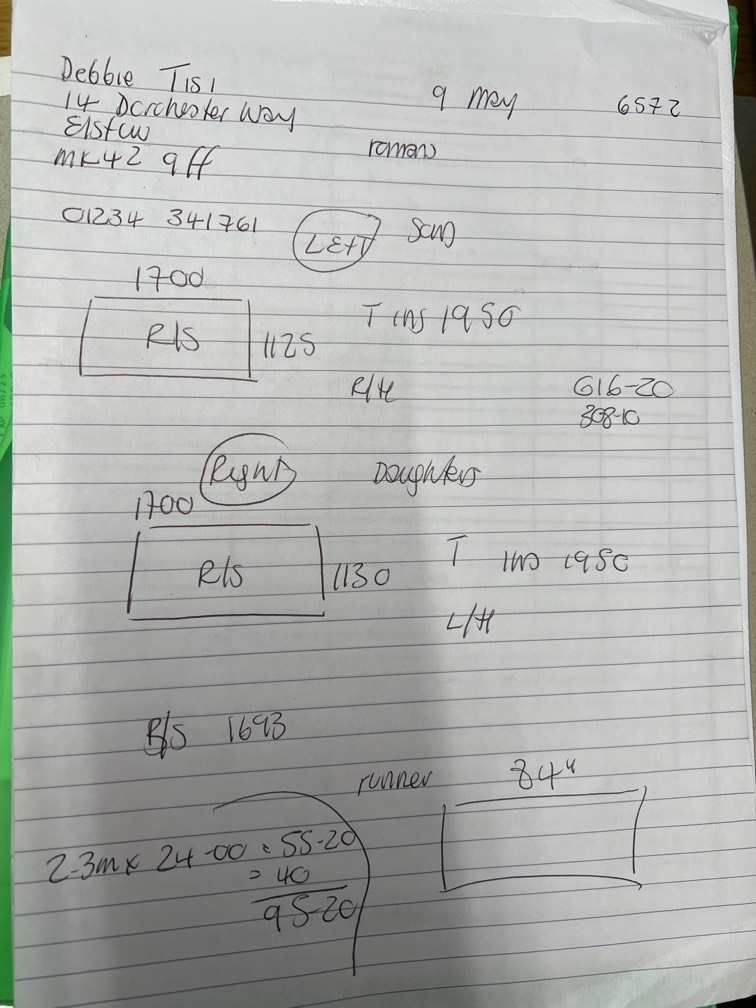 Debbie Tisi
9 May 6572
14 Dorchester Way
Elstow
romans
MK42 9ff
01234 341761
LEft Sans
1700
R/S 1125 T ins 1950
R/H 616-20
308-10
Right Daughters
1700
R/S 1130 T ins 1950
L/H
R/S 1693
runner 84"
2-3m x 24-00 = 55-20
= 40
95-20